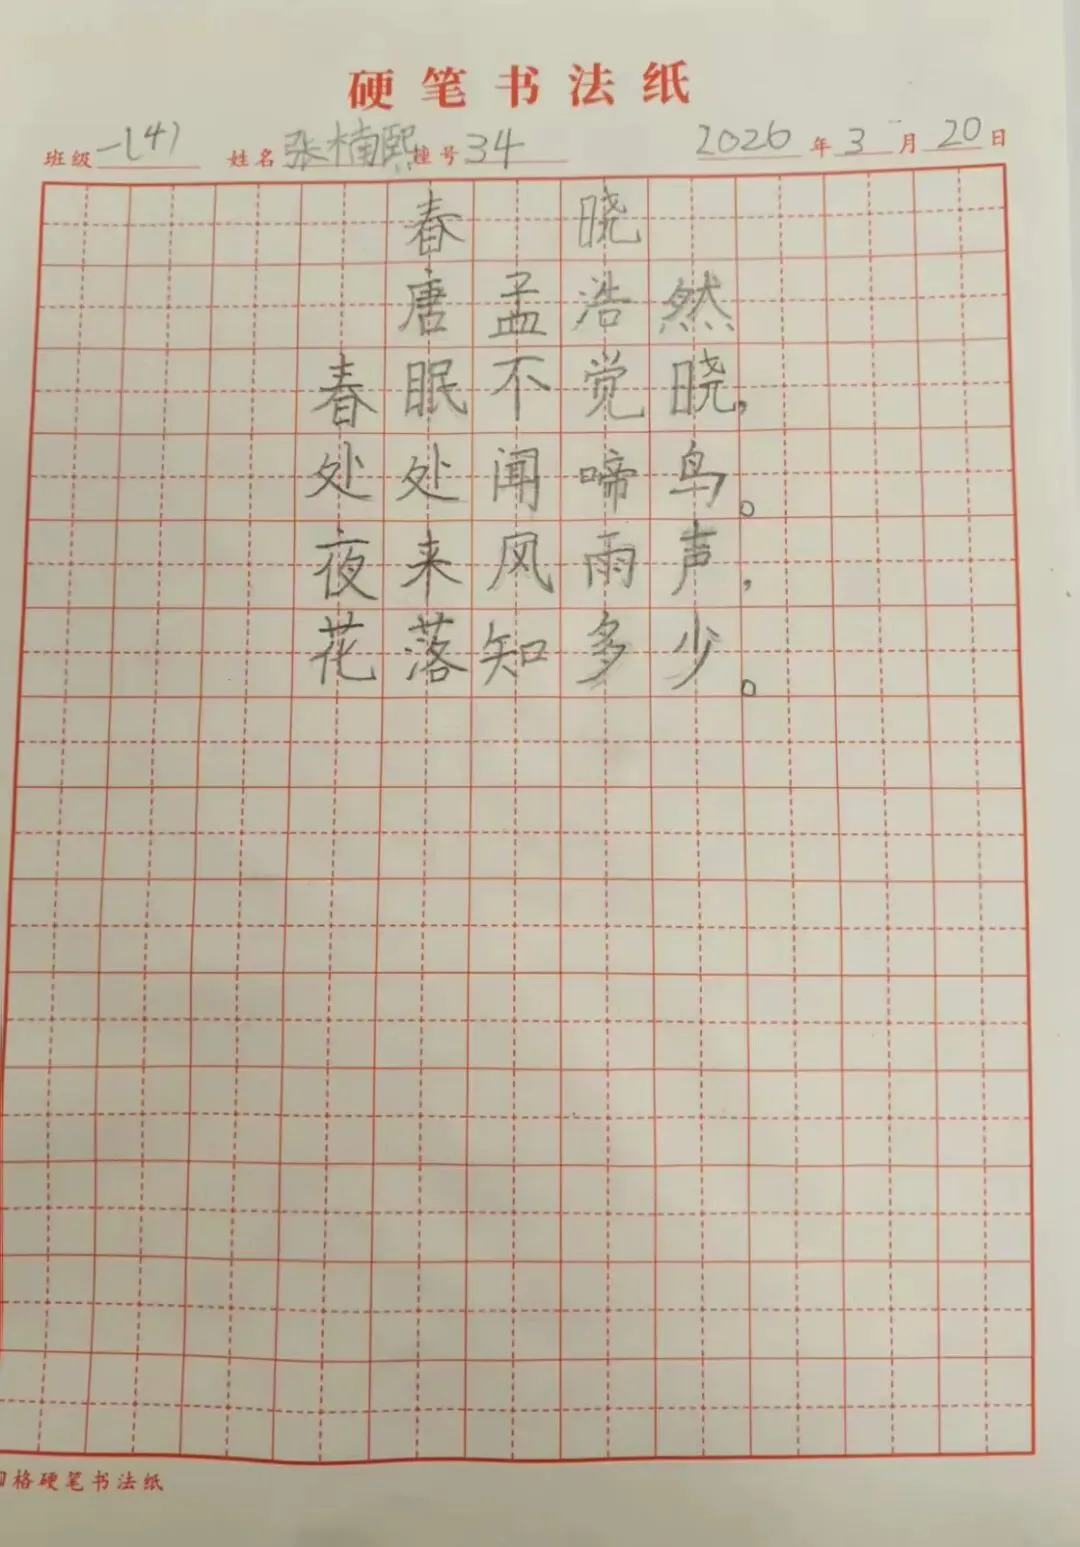 硬笔书法纸
班级 一(4) 姓名 张楠熙 座号 34 2026年3月20日
春晓
唐 孟浩然
春眠不觉晓,
处处闻啼鸟。
夜来风雨声,
花落知多少。
格硬笔书法纸